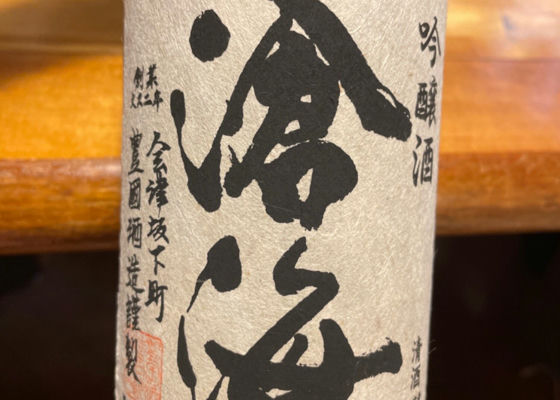 吟醸酒
清酒
滄海
創業
文久二年
会津坂下町
豊國酒造謹製